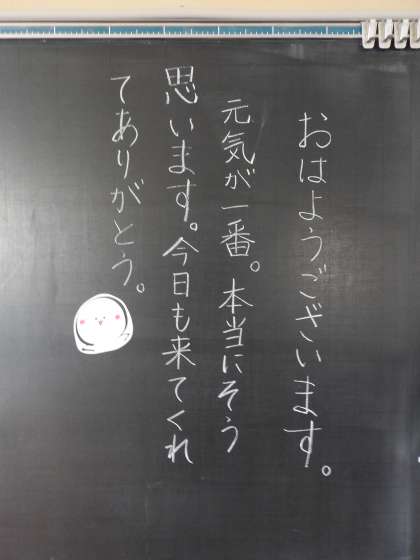 おはようございます。
元気が一番。本当にそう
思います。今日も来てくれ
てありがとう。